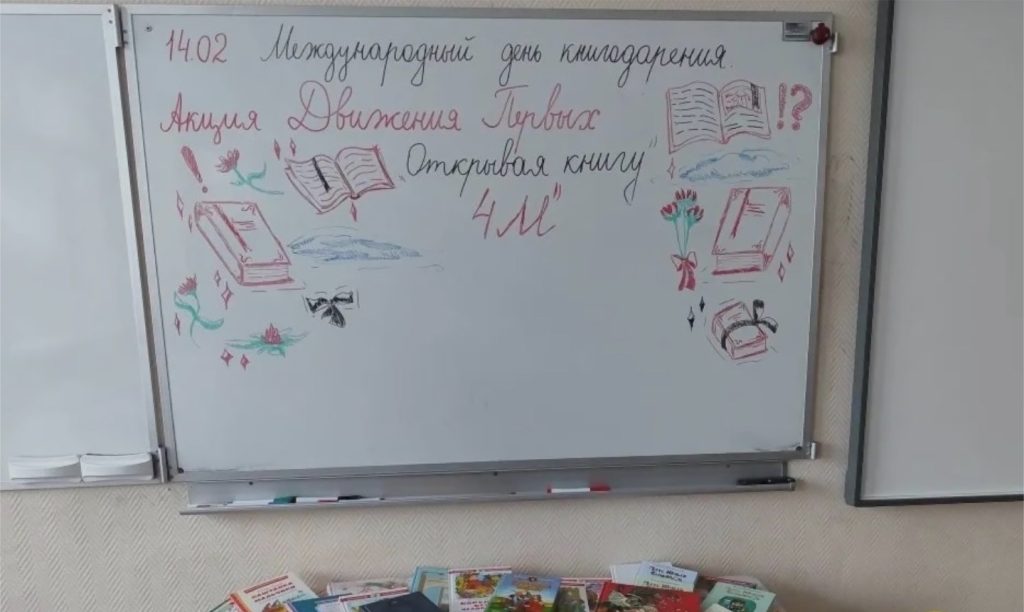 14.02 Международный день книгодарения.
Акция Движения Первых
"Открывая книгу"
4 М"
!?
!